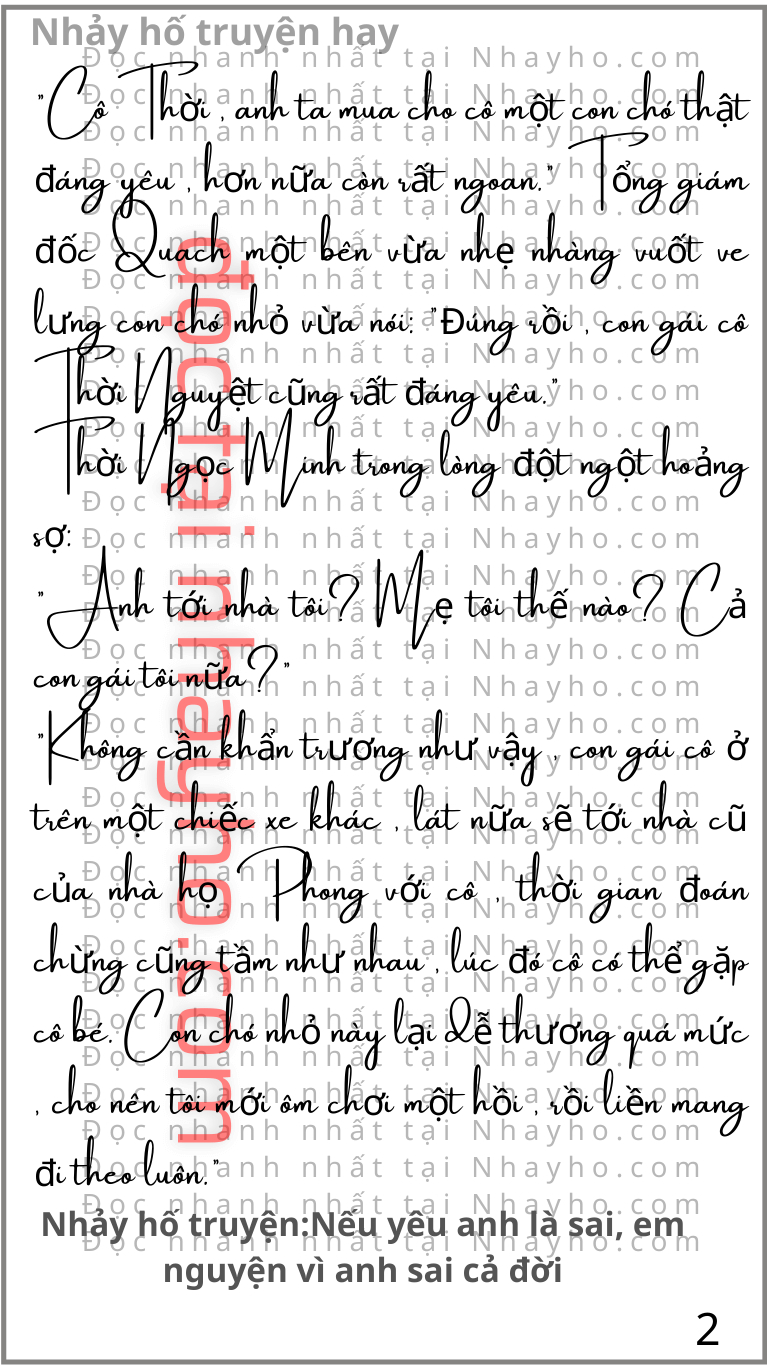 Nhảy hố truyện hay
"Cô Thời , anh ta mua cho cô một con chó thật
đáng yêu , hơn nữa còn rất ngoan." Tổng giám
đốc Quach một bên vừa nhẹ nhàng vuốt ve
lưng con chó nhỏ vừa nói: "Đúng rồi , con gái cô
Thời Nguyệt cũng rất đáng yêu."
Thời Ngọc Minh trong lòng đột ngột hoảng
sợ:
"Anh tới nhà tôi? Mẹ tôi thế nào? Cả
con gái tôi nữa?"
"Không cần khẩn trương như vậy , con gái cô ở
trên một chiếc xe khác , lát nữa sẽ tới nhà cũ
của nhà họ Phong với cô , thời gian đoán
chừng cũng tầm như nhau , lúc đó cô có thể gặp
cô bé. Con chó nhỏ này lại dễ thương quá mức
, cho nên tôi mới ôm chơi một hồi , rồi liền mang
đi theo luôn."
Nhảy hố truyện:Nếu yêu anh là sai, em
nguyện vì anh sai cả đời
2
đọc tại nhayho.com
Đọc nhanh nhất tại Nhayho.com